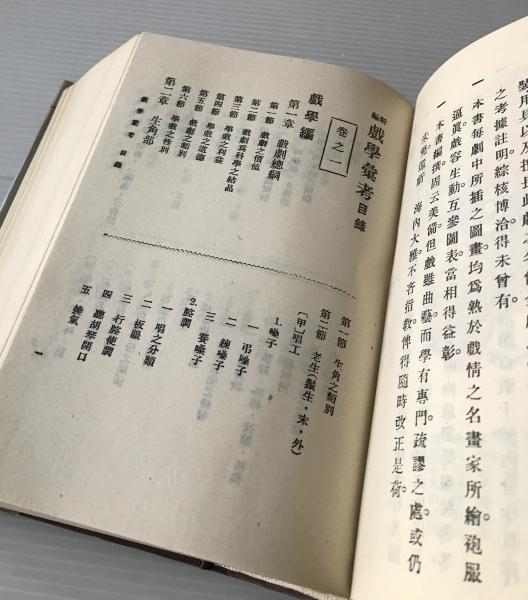 之考據註明綜核博洽得未曾有。
一 本書每劇中所插之圖畫均為熟於戲情之名畫家所繪袍服
逼眞戲容生動互參圖表當相得益彰。
一 本書編撰固云美備但戲雖曲藝而學有專門疏謬之處或仍
未希還祈 海內大雅不吝指教俾得隨時改正是荷。
新編 戲學彙考目錄
卷之一
戲學編
第一章 戲劇總綱
第一節 戲劇之價值
第二節 戲劇爲科學之結晶
第三節 學戲之利益
第四節 學戲之道德
第五節 戲劇之類別
第六節 學戲之性別
第二章 生角部
戲學彙考 目錄
第一節 生角之類別
第二節 老生(鬚生·末·外)
〔甲〕唱工
1.嗓子
一 弔嗓子
二 練嗓子
三 養嗓子
2.腔調
一 唱之分類
二 板眼
三 行腔使調
四 聽胡琴開口
五 換氣
一